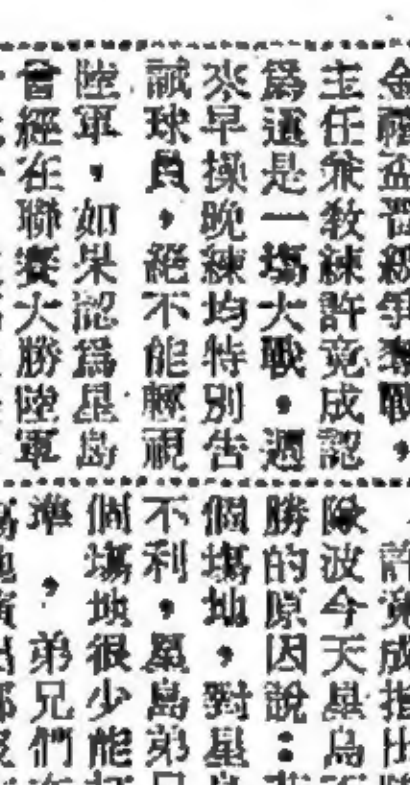 金禧盃晋級爭奪戰，
主任兼教練許竟成認
爲這是一塲大戰。週
來早操晚練均特別告
誡球員，絕不能輕視
陸軍，如果認爲星島
曾經在聯賽大勝陸軍
許竟成指出
隊波今天星島
勝的原因說：
個塲地，對星
不利，星島弟
個塲地很少能
準，弟兄們